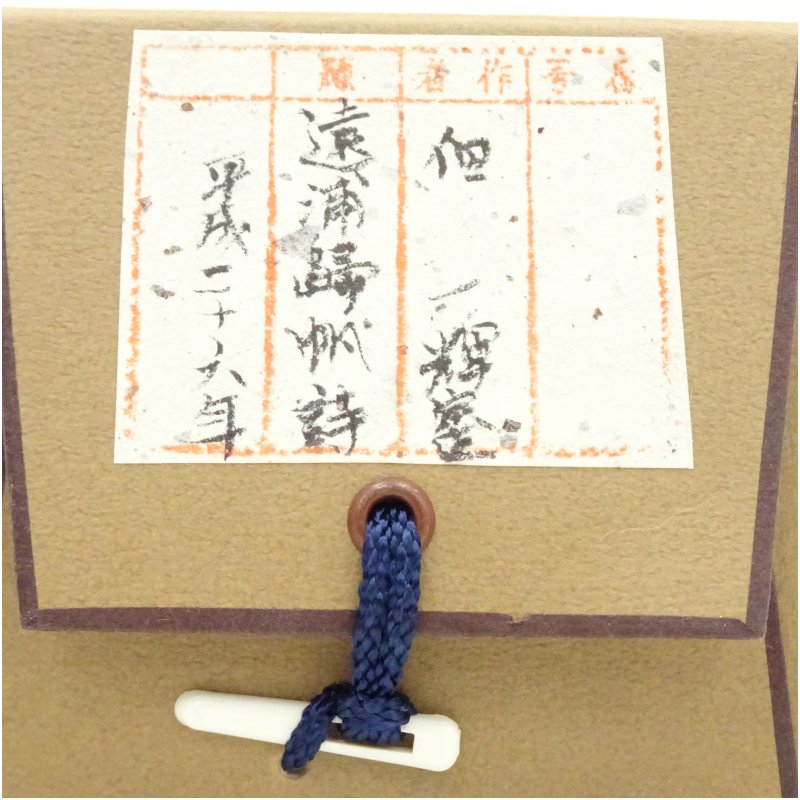 番号
作者
但一輝峯
題
遠浦歸帆詩
平成二十六年